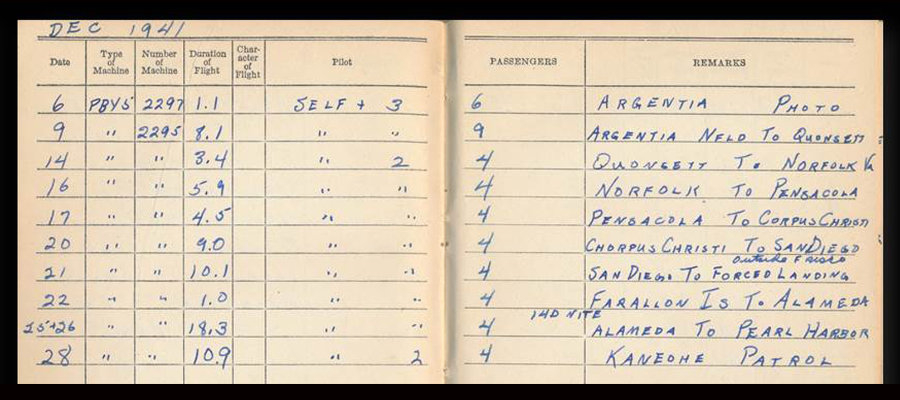 DEC 1941
Date Type of Machine Number of Machine Duration of Flight Character of Flight Pilot PASSENGERS REMARKS
6 PBY5 2297 1.1 SELF + 3 6 ARGENTIA PHOTO
9 " 2295 8.1 " " 9 ARGENTIA NFLD TO QUONSETT
14 " " 3.4 " 2 4 QUONSETT TO NORFOLK Va
16 " " 5.9 " " 4 NORFOLK TO PENSACOLA
17 " " 4.5 " " 4 PENSACOLA TO CORPUS CHRISTI
20 " " 9.0 " " 4 CHORPUS CHRISTI TO SAN DIEGO
outside Frisco
21 " " 10.1 " " 4 SAN DIEGO TO FORCED LANDING
22 " " 1.0 " " 4 FARALLON IS TO ALAMEDA
14D NITE
25+26 " " 18.3 " " 4 ALAMEDA TO PEARL HARBOR
28 " " 10.9 " 2 4 KANEOHE PATROL